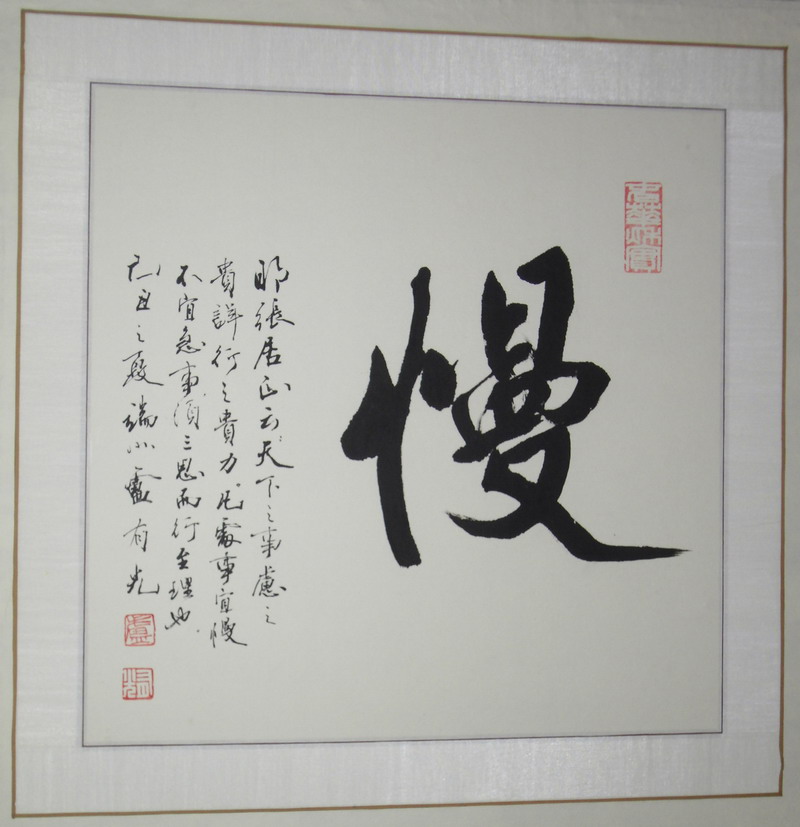 慢
明張居正云天下之事慮之
貴詳行之貴力凡處事宜慢
不宜急事須三思而行至理也
己丑之夏端州盧有光